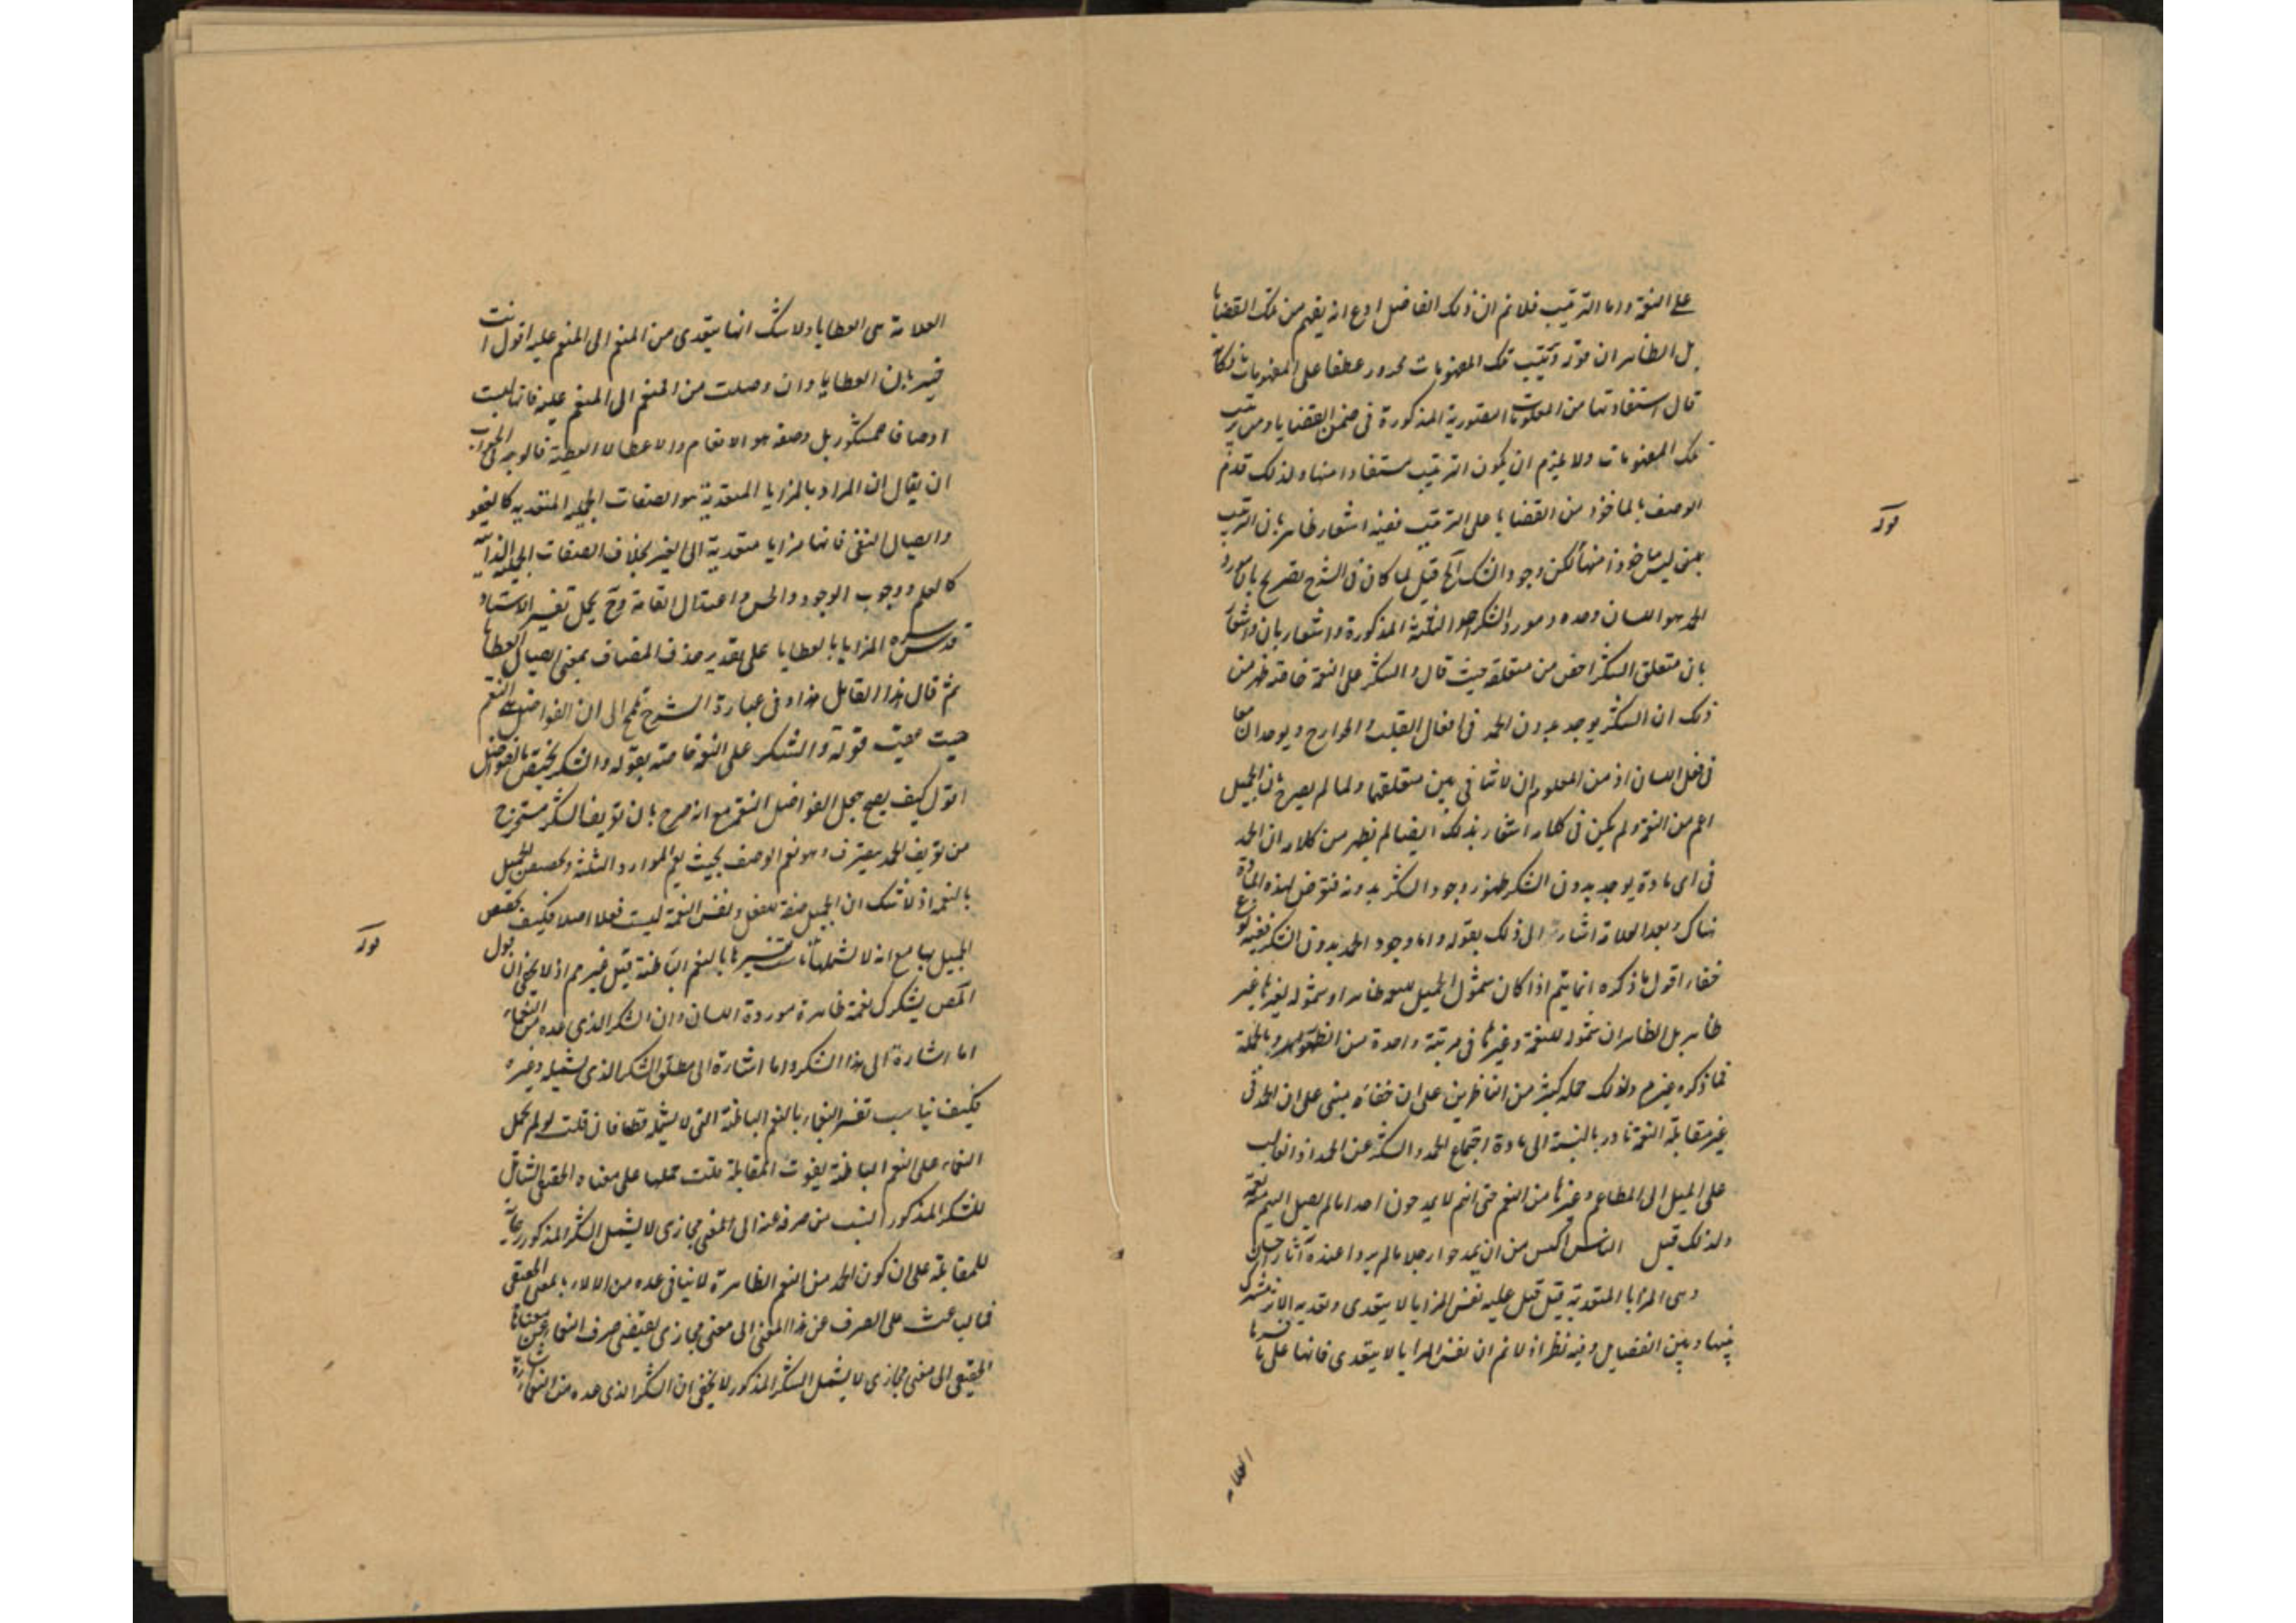 على النعمة واما الترتيب فلا نم ان ذلك الفاضل ادع انه يفهم من تلك القضايا
بل الظاهر ان قوله وترتيب تلك المفهومات مجرور عطفا على المفهومات فكانه
قال استفادتها من المعلومات التصورية المذكورة في ضمن القضايا ومن ترتيب
تلك المفهومات ولا يلزم ان يكون الترتيب مستفادا منها ولذلك قدم
الوصف بالماخوذ من القضايا على الترتيب ففيه اشعار ظاهر بان الترتيب
قوله
ليس ماخوذا منها لكن وجود الشكر الخ قيل لما كان في الشرح تصريح بان مورد
الحمد هو اللسان وحده ومورد الشكر هو الثلثة المذكورة واشعار
بان متعلق الشكر اخص من متعلقه حيث قال والشكر على النعمة خاصة ظهر من
ذلك ان الشكر يوجد بدون الحمد في افعال القلب والجوارح ويوجدان معا
في فعل اللسان اذ من المعلوم ان لا تنافي بين متعلقهما ولما لم يصرح بان الجميل
اعم من النعمة ولم يكن في كلامه اشعار بذلك ايضا لم يظهر من كلامه ان الحمد
في اي مادة يوجد بدون الشكر ظهور وجود الشكر بدونه فتعرض لهذه المادة
هناك وبعد العلامة اشار الى ذلك بقوله واما وجود الحمد بدون الشكر ففيه نوع
خفاء اقول ما ذكره انما يتم اذا كان شمول الجميل للنعمة ظاهرا وشموله لغيرها غير
ظاهر بل الظاهر ان شموله للنعمة وغيرها في مرتبة واحدة من الظهور وبالجملة
فما ذكره غير م ولذلك حمله كثير من الناظرين على ان خفاءه مبني على ان الحمد في
غير مقابلة النعمة نادر بالنسبة الى مادة اجتماع الحمد والشكر عن الحمد اذ الغالب
على الميل الى المطاعم وغيرها من النعم حتى انهم لا يمدحون احدا ما لم يصل اليهم منه نعمة
ولذلك قيل الناس اكيس من ان يمدحوا رجلا ما لم يروا عنده آثار احسان
وهي المزايا المتعدية قيل عليه نفس المزايا لا يتعدى وتعديه الاثر مشترك
بينها وبين الفضايل وفيه نظر اذ لا نم ان نفس المزايا لا يتعدى فانها على ما فسرها
العلامة
العلامة هى العطايا ولا شك انها يتعدى من المنعم الى المنعم عليه اقول انت
خبير بان العطايا وان وصلت من المنعم الى المنعم عليه فانها ليست
اوصافا للمشكور بل وصفه هو الانعام والاعطا لا العطية فالوجه في الجواب
ان يقال ان المراد بالمزايا المتعدية هو الصفات الجميلة المتعدية كالعفو
وايصال النفع فانها مزايا متعدية الى الغير بخلاف الصفات الجميلة الذاتية
كالعلم ووجوب الوجود والحسن واعتدال القامة وح يحمل تفسير الاستاد
قدس سره المزايا بالعطايا على تقدير حذف المضاف بمعنى ايصال العطايا
ثم قال هذا القايل هذا وفي عبارة الشرح تلميح الى ان الفواضل هي النعم
حيث عقب قوله والشكر على النعمة خاصة بقوله والشكر يختص بالفواضل
اقول كيف يصح جعل الفواضل النعم مع انه صرح بان تعريف الشكر مستخرج
من تعريف الحمد بتعميم الوصف بحيث يعم الموارد الثلثة وتخصيص الجميل
بالنعمة اذ لا شك ان الجميل صفة للفعل ونفس النعمة ليست فعلا اصلا فكيف تخصص
الجميل بها مع انه لا يشملها
قوله
تفسيرها بالنعم الباطنة قيل غير م اذ لا يخفى ان قول
المص يشكرك نعمة ظاهرة موردة اللسان وان الشكر الذي عده من النعماء
اما اشارة الى هذا الشكر واما اشارة الى مطلق الشكر الذي يشمله وغيره
فكيف يناسب تفسير النعماء بالنعم الباطنة التي لا يشمله قطعا فان قلت لو لم يحمل
النعماء على النعم الباطنة يفوت المقابلة قلت حملها على معناه الحقيقي الشامل
للشكر المذكور انسب من صرفه عنه الى المعنى مجازى لا يشمل الشكر المذكور رعاية
للمقابلة على ان كون الحمد من النعم الظاهرة لا ينافي عده من الالاء بالمعنى الحقيقي
فما الباعث على الصرف عن هذا المعنى الى معنى مجازى يقتضى صرف النعماء عن معناها
الحقيقي الى معنى مجازى لا يشمل الشكر المذكور لا يخفى ان الشكر الذي عده من النعماء اشارة